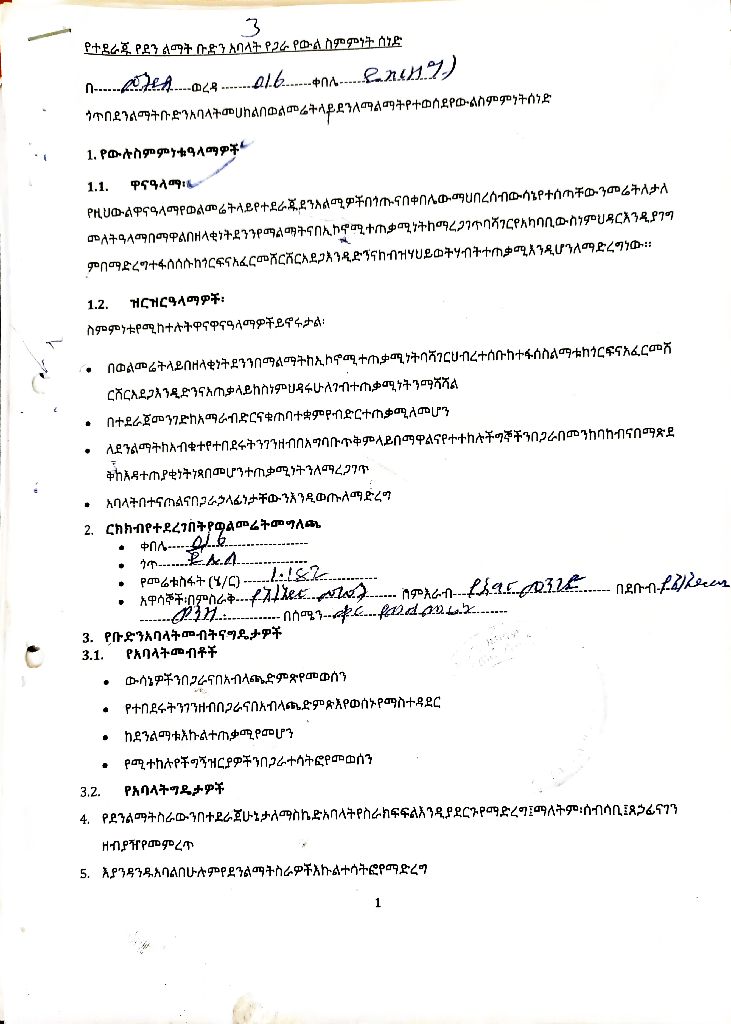 3
የተደራጁ የደን ልማት ቡድን አባላት የጋራ የውል ስምምነት ሰነድ
በ------ ወረዳ --------016------ቀበሌ
ጎጥበደንልማትቡድንአባላትመሀከልበወልመሬትላይደንለማልማትየተወሰደየውልስምምነትሰነድ
1. የውሉስምምነቱዓላማዎች
1.1. ዋናዓላማ፡
የዚህውልዋናዓላማየወልመሬትላይየተደራጁደንአልሚዎችበጎጡናበቀበሌውማህበረሰብውሳኔየተሰጣቸውንመሬትለታለ
መለትዓላማበማዋልበዘላቂነትደንንየማልማትናበኢኮኖሚተጠቃሚነትከማረጋገጥባሻገርየአካባቢውስነምህዳርእንዲያገግ
ምበማድረግተፋሰሱከጎርፍናአፈርመሸርሸርአደጋእንዲድንናከብዝሃህይወትሃብትተጠቃሚእንዲሆንለማድረግነው።
1.2. ዝርዝርዓላማዎች፡
ስምምነቱየሚከተሉትዋናዋናዓላማዎችይኖሩታል፡
• በወልመሬትላይበዘላቂነትደንንበማልማትከኢኮኖሚተጠቃሚነትባሻገርህብረተሰቡከተፋሰስልማቱከጎርፍናአፈርመሸ
ርሸርአደጋእንዲድንናአጠቃላይከስነምህዳሩሁለገብተጠቃሚነትንማሻሻል
• በተደራጀመንገድከአማራብድርናቁጠባተቋምየብድርተጠቃሚለመሆን
• ለደንልማትከአብቁተየተበደሩትንገንዘብበአግባቡጥቅምላይበማዋልናየተተከሉችግኞችንበጋራበመንከባከብናበማጽደ
ቅከእዳተጠያቂነትነጻበመሆንተጠቃሚነትንለማረጋገጥ
• አባላትበተናጠልናበጋራኃላፊነታቸውንእንዲወጡለማድረግ
2. ርክክብየተደረገበትየወልመሬትመግለጫ
• ቀበሌ-----016------
• ጎጥ------
• የመሬቱስፋት (ሄ/ር) ------1.182------
• አዋሳኞቹ፡በምስራቅ------ በምእራብ------ በደቡብ
------ በሰሜን------
3. የቡድንአባላትመብትናግዴታዎች
3.1. የአባላትመብቶች
• ውሳኔዎችንበጋራናበአብላጫድምጽየመወሰን
• የተበደሩትንገንዘብበጋራናበአብላጫድምጽእየወሰኑየማስተዳደር
• ከደንልማቱእኩልተጠቃሚየመሆን
• የሚተከሉየችግኝዝርያዎችንበጋራተሳትፎየመወሰን
3.2. የአባላትግዴታዎች
4. የደንልማትስራውንበተደራጀሁኔታለማስኬድአባላትየስራክፍፍልእንዲያደርጉየማድረግ፤ማለትም፡ሰብሳቢ፤ጸኃፊናገን
ዘብያዥየመምረጥ
5. እያንዳንዱአባልበሁሉምየደንልማትስራዎችእኩልተሳትፎየማድረግ
1